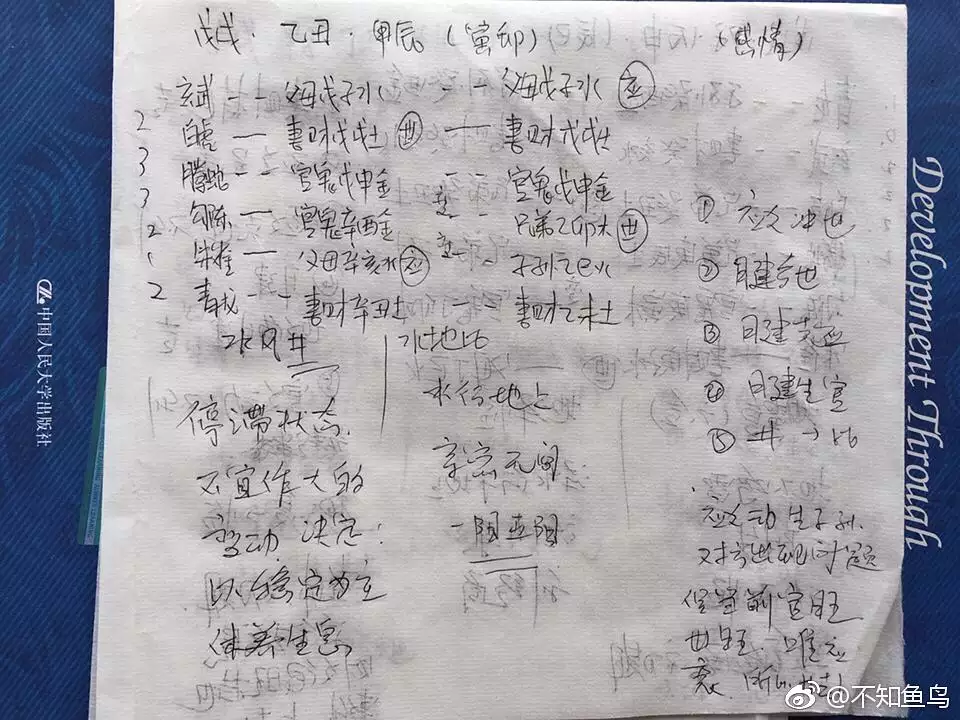 戊戌·乙丑·甲辰(寅卯) (感情)
玄武 -- 父母戊子水 -- 父母戊子水 应
2 白虎 — 妻财戊戌土 世 — 妻财戊戌土
3 腾蛇 -- 官鬼戊申金 -- 官鬼戊申金
3 勾陈 — 官鬼辛酉金 变 -- 兄弟乙卯木 世
2 朱雀 — 父母辛亥水 应 变 -- 子孙乙巳火
2 青龙 -- 妻财辛丑土 妻财乙未土
水风井
停滞状态
不宜作大的
变动 决定:
以稳定为主
休养生息
水地比
水行地上
亲密无间
① 应爻冲世
② 日建合世
③ 日建克应
④ 日建生官
⑤ 井→比
应爻动生子孙.
对方出现问题
官旺
世旺. 唯应
衰.
中国人民大学出版社
Development Through
@不知鱼鸟